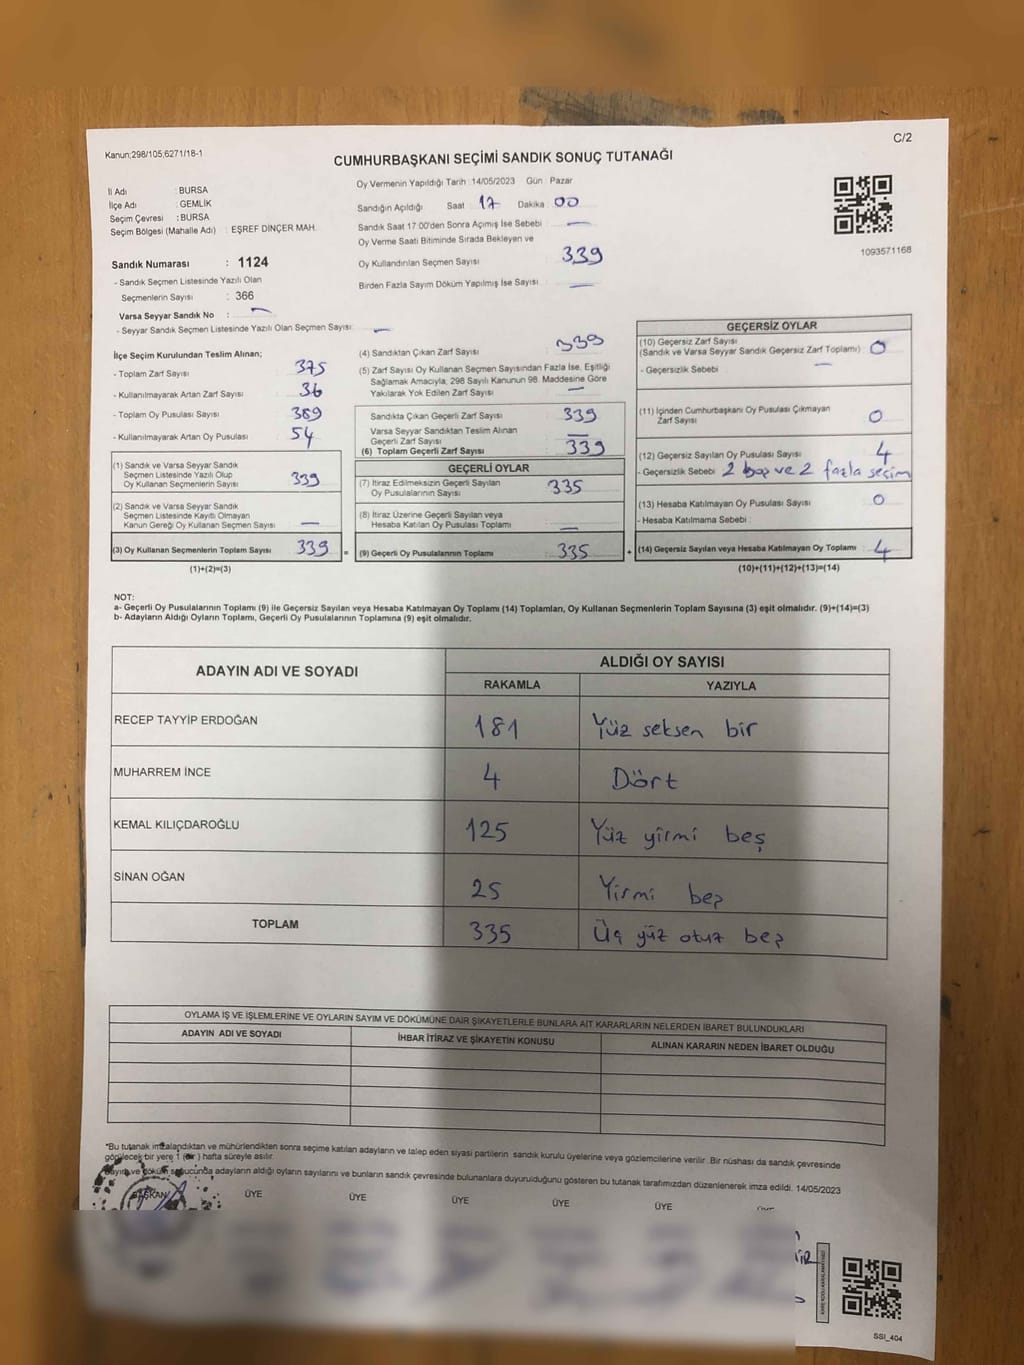 C/2
Kanun;298/105,6271/18-1
CUMHURBAŞKANI SEÇİMİ SANDIK SONUÇ TUTANAĞI
İl Adı : BURSA
İlçe Adı : GEMLİK
Seçim Çevresi : BURSA
Seçim Bölgesi (Mahalle Adı) : EŞREF DİNÇER MAH.
Sandık Numarası : 1124
- Sandık Seçmen Listesinde Yazılı Olan
Seçmenlerin Sayısı : 366
Varsa Seyyar Sandık No : —
- Seyyar Sandık Seçmen Listesinde Yazılı Olan Seçmen Sayısı: —
Oy Vermenin Yapıldığı Tarih : 14/05/2023 Gün : Pazar
Sandığın Açıldığı Saat 17 Dakika 00
Sandık Saat 17:00'den Sonra Açımış İse Sebebi : —
Oy Verme Saati Bitiminde Sırada Bekleyen ve
Oy Kullandırılan Seçmen Sayısı : 339
Birden Fazla Sayım Döküm Yapılmış İse Sayısı : —
1093571168
İlçe Seçim Kurulundan Teslim Alınan;
- Toplam Zarf Sayısı : 375
- Kullanılmayarak Artan Zarf Sayısı : 36
- Toplam Oy Pusulası Sayısı : 389
- Kullanılmayarak Artan Oy Pusulası : 54
(1) Sandık ve Varsa Seyyar Sandık
Seçmen Listesinde Yazılı Olup
Oy Kullanan Seçmenlerin Sayısı : 339
(2) Sandık ve Varsa Seyyar Sandık
Seçmen Listesinde Kayıtlı Olmayan
Kanun Gereği Oy Kullanan Seçmen Sayısı : —
(3) Oy Kullanan Seçmenlerin Toplam Sayısı : 339 =
(1)+(2)=(3)
(4) Sandıktan Çıkan Zarf Sayısı : 339
(5) Zarf Sayısı Oy Kullanan Seçmen Sayısından Fazla İse, Eşitliği
Sağlamak Amacıyla, 298 Sayılı Kanunun 98. Maddesine Göre
Yakılarak Yok Edilen Zarf Sayısı : —
Sandıkta Çıkan Geçerli Zarf Sayısı : 339
Varsa Seyyar Sandıktan Teslim Alınan
Geçerli Zarf Sayısı : —
(6) Toplam Geçerli Zarf Sayısı : 339
GEÇERLİ OYLAR
(7) İtiraz Edilmeksizin Geçerli Sayılan
Oy Pusulalarının Sayısı : 335
(8) İtiraz Üzerine Geçerli Sayılan veya
Hesaba Katılan Oy Pusulası Toplamı : —
(9) Geçerli Oy Pusulalarının Toplamı : 335 +
GEÇERSİZ OYLAR
(10) Geçersiz Zarf Sayısı
(Sandık ve Varsa Seyyar Sandık Geçersiz Zarf Toplamı) : 0
- Geçersizlik Sebebi : —
(11) İçinden Cumhurbaşkanı Oy Pusulası Çıkmayan
Zarf Sayısı : 0
(12) Geçersiz Sayılan Oy Pusulası Sayısı : 4
- Geçersizlik Sebebi : 2 boş ve 2 fazla seçim
(13) Hesaba Katılmayan Oy Pusulası Sayısı : 0
- Hesaba Katılmama Sebebi :
(14) Geçersiz Sayılan veya Hesaba Katılmayan Oy Toplamı : 4
(10)+(11)+(12)+(13)=(14)
NOT:
a- Geçerli Oy Pusulalarının Toplamı (9) ile Geçersiz Sayılan veya Hesaba Katılmayan Oy Toplamı (14) Toplamları, Oy Kullanan Seçmenlerin Toplam Sayısına (3) eşit olmalıdır. (9)+(14)=(3)
b- Adayların Aldığı Oyların Toplamı, Geçerli Oy Pusulalarının Toplamına (9) eşit olmalıdır.
ADAYIN ADI VE SOYADI ALDIĞI OY SAYISI
RAKAMLA YAZIYLA
RECEP TAYYİP ERDOĞAN 181 Yüz seksen bir
MUHARREM İNCE 4 Dört
KEMAL KILIÇDAROĞLU 125 Yüz yirmi beş
SİNAN OĞAN 25 Yirmi beş
TOPLAM 335 Üç yüz otuz beş
OYLAMA İŞ VE İŞLEMLERİNE VE OYLARIN SAYIM VE DÖKÜMÜNE DAİR ŞİKAYETLERLE BUNLARA AİT KARARLARIN NELERDEN İBARET BULUNDUKLARI
ADAYIN ADI VE SOYADI İHBAR İTİRAZ VE ŞİKAYETİN KONUSU ALINAN KARARIN NEDEN İBARET OLDUĞU
*Bu tutanak imzalandıktan ve mühürlendikten sonra seçime katılan adayların ve talep eden siyasi partilerin sandık kurulu üyelerine veya gözlemcilerine verilir .Bir nüshası da sandık çevresinde
görülecek bir yere 1 (Bir) hafta süreyle asılır.
Sayım ve döküm sonucunda adayların aldığı oyların sayılarını ve bunların sandık çevresinde bulunanlara duyurulduğunu gösteren bu tutanak tarafımızdan düzenlenerek imza edildi. 14/05/2023
BAŞKAN ÜYE ÜYE ÜYE ÜYE ÜYE ÜYE
SSI_404